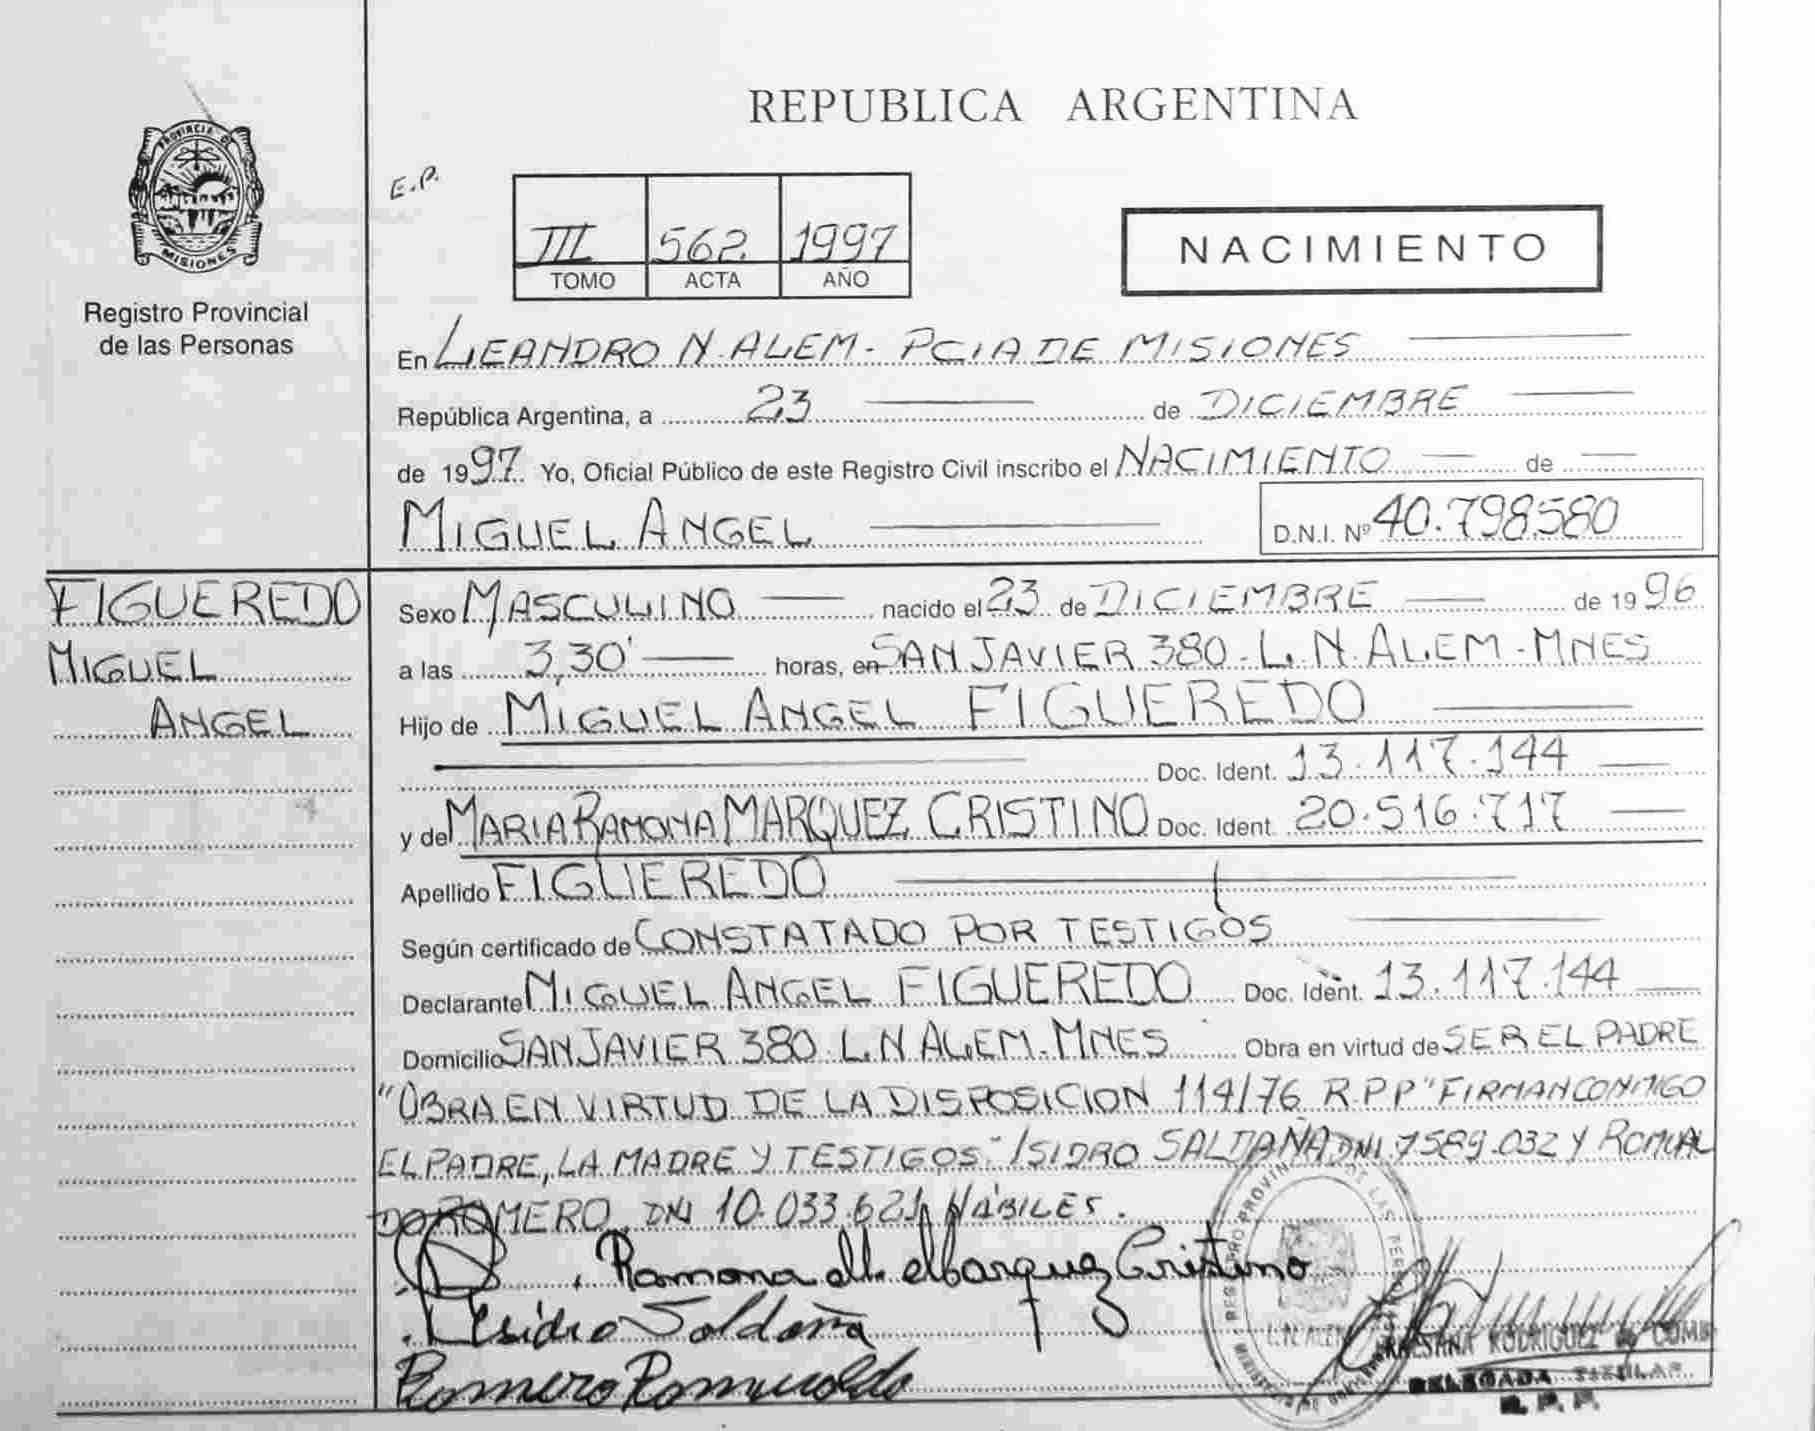 PROVINCIA DE
MISIONES
Registro Provincial
de las Personas
REPUBLICA ARGENTINA
E.P.
III 562 1997
TOMO ACTA AÑO
NACIMIENTO
En LEANDRO N. ALEM - PCIA DE MISIONES
República Argentina, a 23 de DICIEMBRE
de 1997. Yo, Oficial Público de este Registro Civil inscribo el NACIMIENTO de
MIGUEL ANGEL
D.N.I. Nº 40.798580
FIGUEREDO
MIGUEL
ANGEL
Sexo MASCULINO nacido el 23 de DICIEMBRE de 1996
a las 3,30' horas, en SAN JAVIER 380 - L. N. ALEM - MNES
Hijo de MIGUEL ANGEL FIGUEREDO
Doc. Ident. 13.117.144
y de MARIA RAMONA MARQUEZ CRISTINO Doc. Ident. 20.516.717
Apellido FIGUEREDO
Según certificado de CONSTATADO POR TESTIGOS
Declarante MIGUEL ANGEL FIGUEREDO Doc. Ident. 13.117.144
Domicilio SAN JAVIER 380 L. N ALEM - MNES Obra en virtud de SER EL PADRE
"OBRA EN VIRTUD DE LA DISPOSICION 114/76 R.P.P" FIRMAN CONMIGO
EL PADRE, LA MADRE Y TESTIGOS - ISIDRO SALDAÑA DNI 7589.032 Y ROMUAL
DO ROMERO, DNI 10.033.621 HÁBILES.
Ramona M. Marquez Cristino
Isidro Saldaña
Romero Romualdo
REGISTRO PROVINCIAL DE LAS PERSONAS
L. N. ALEM
RODRIGUEZ de
DELEGADA TITULAR
R. P. P.